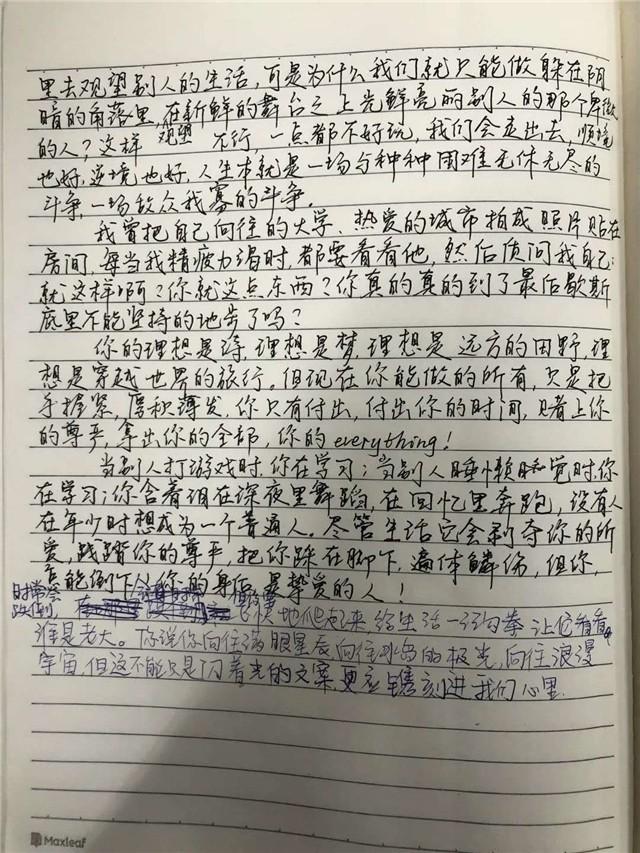 里去观望别人的生活,可是为什么我们就只能做躲在阴
暗的角落里,在新鲜的舞台之上光鲜亮丽别人的那个卑微
的人?这样 观望 不行,一点都不好玩,我们会走出去,顺境
也好,逆境也好,人生本就是一场与种种困难无休无尽的
斗争,一场敌众我寡的斗争。
我曾把自己向往的大学、热爱的城市拍成照片贴在
房间,每当我精疲力竭时,都要看看他,然后质问我自己:
就这样啊?你就这点东西?你真的真的到了最后歇斯
底里不能坚持的地步了吗?
你的理想是诗,理想是梦,理想是远方的田野,理
想是穿越世界的旅行。但现在你能做的所有,只是把
手握紧,厚积薄发,你只有付出,付出你的时间,赌上你
的尊严,拿出你的全部,你的everything!
当别人打游戏时,你在学习;当别人睡懒觉时,你
在学习;你含着泪在深夜里舞蹈,在回忆里奔跑,没有人
在年少时想成为一个普通人。尽管生活它会剥夺你的所
爱,践踏你的尊严,把你踩在脚下,遍体鳞伤,但你,
怎能倒下!你的身后是挚爱的人!
时常会
跌倒, 地爬起来给生活一记勾拳,让它看看
谁是老大。你说你向往满眼星辰,向往冰岛的极光,向往浪漫
宇宙,但这不能只是闪着光的文案,更应镌刻进我们心里.
Maxleaf